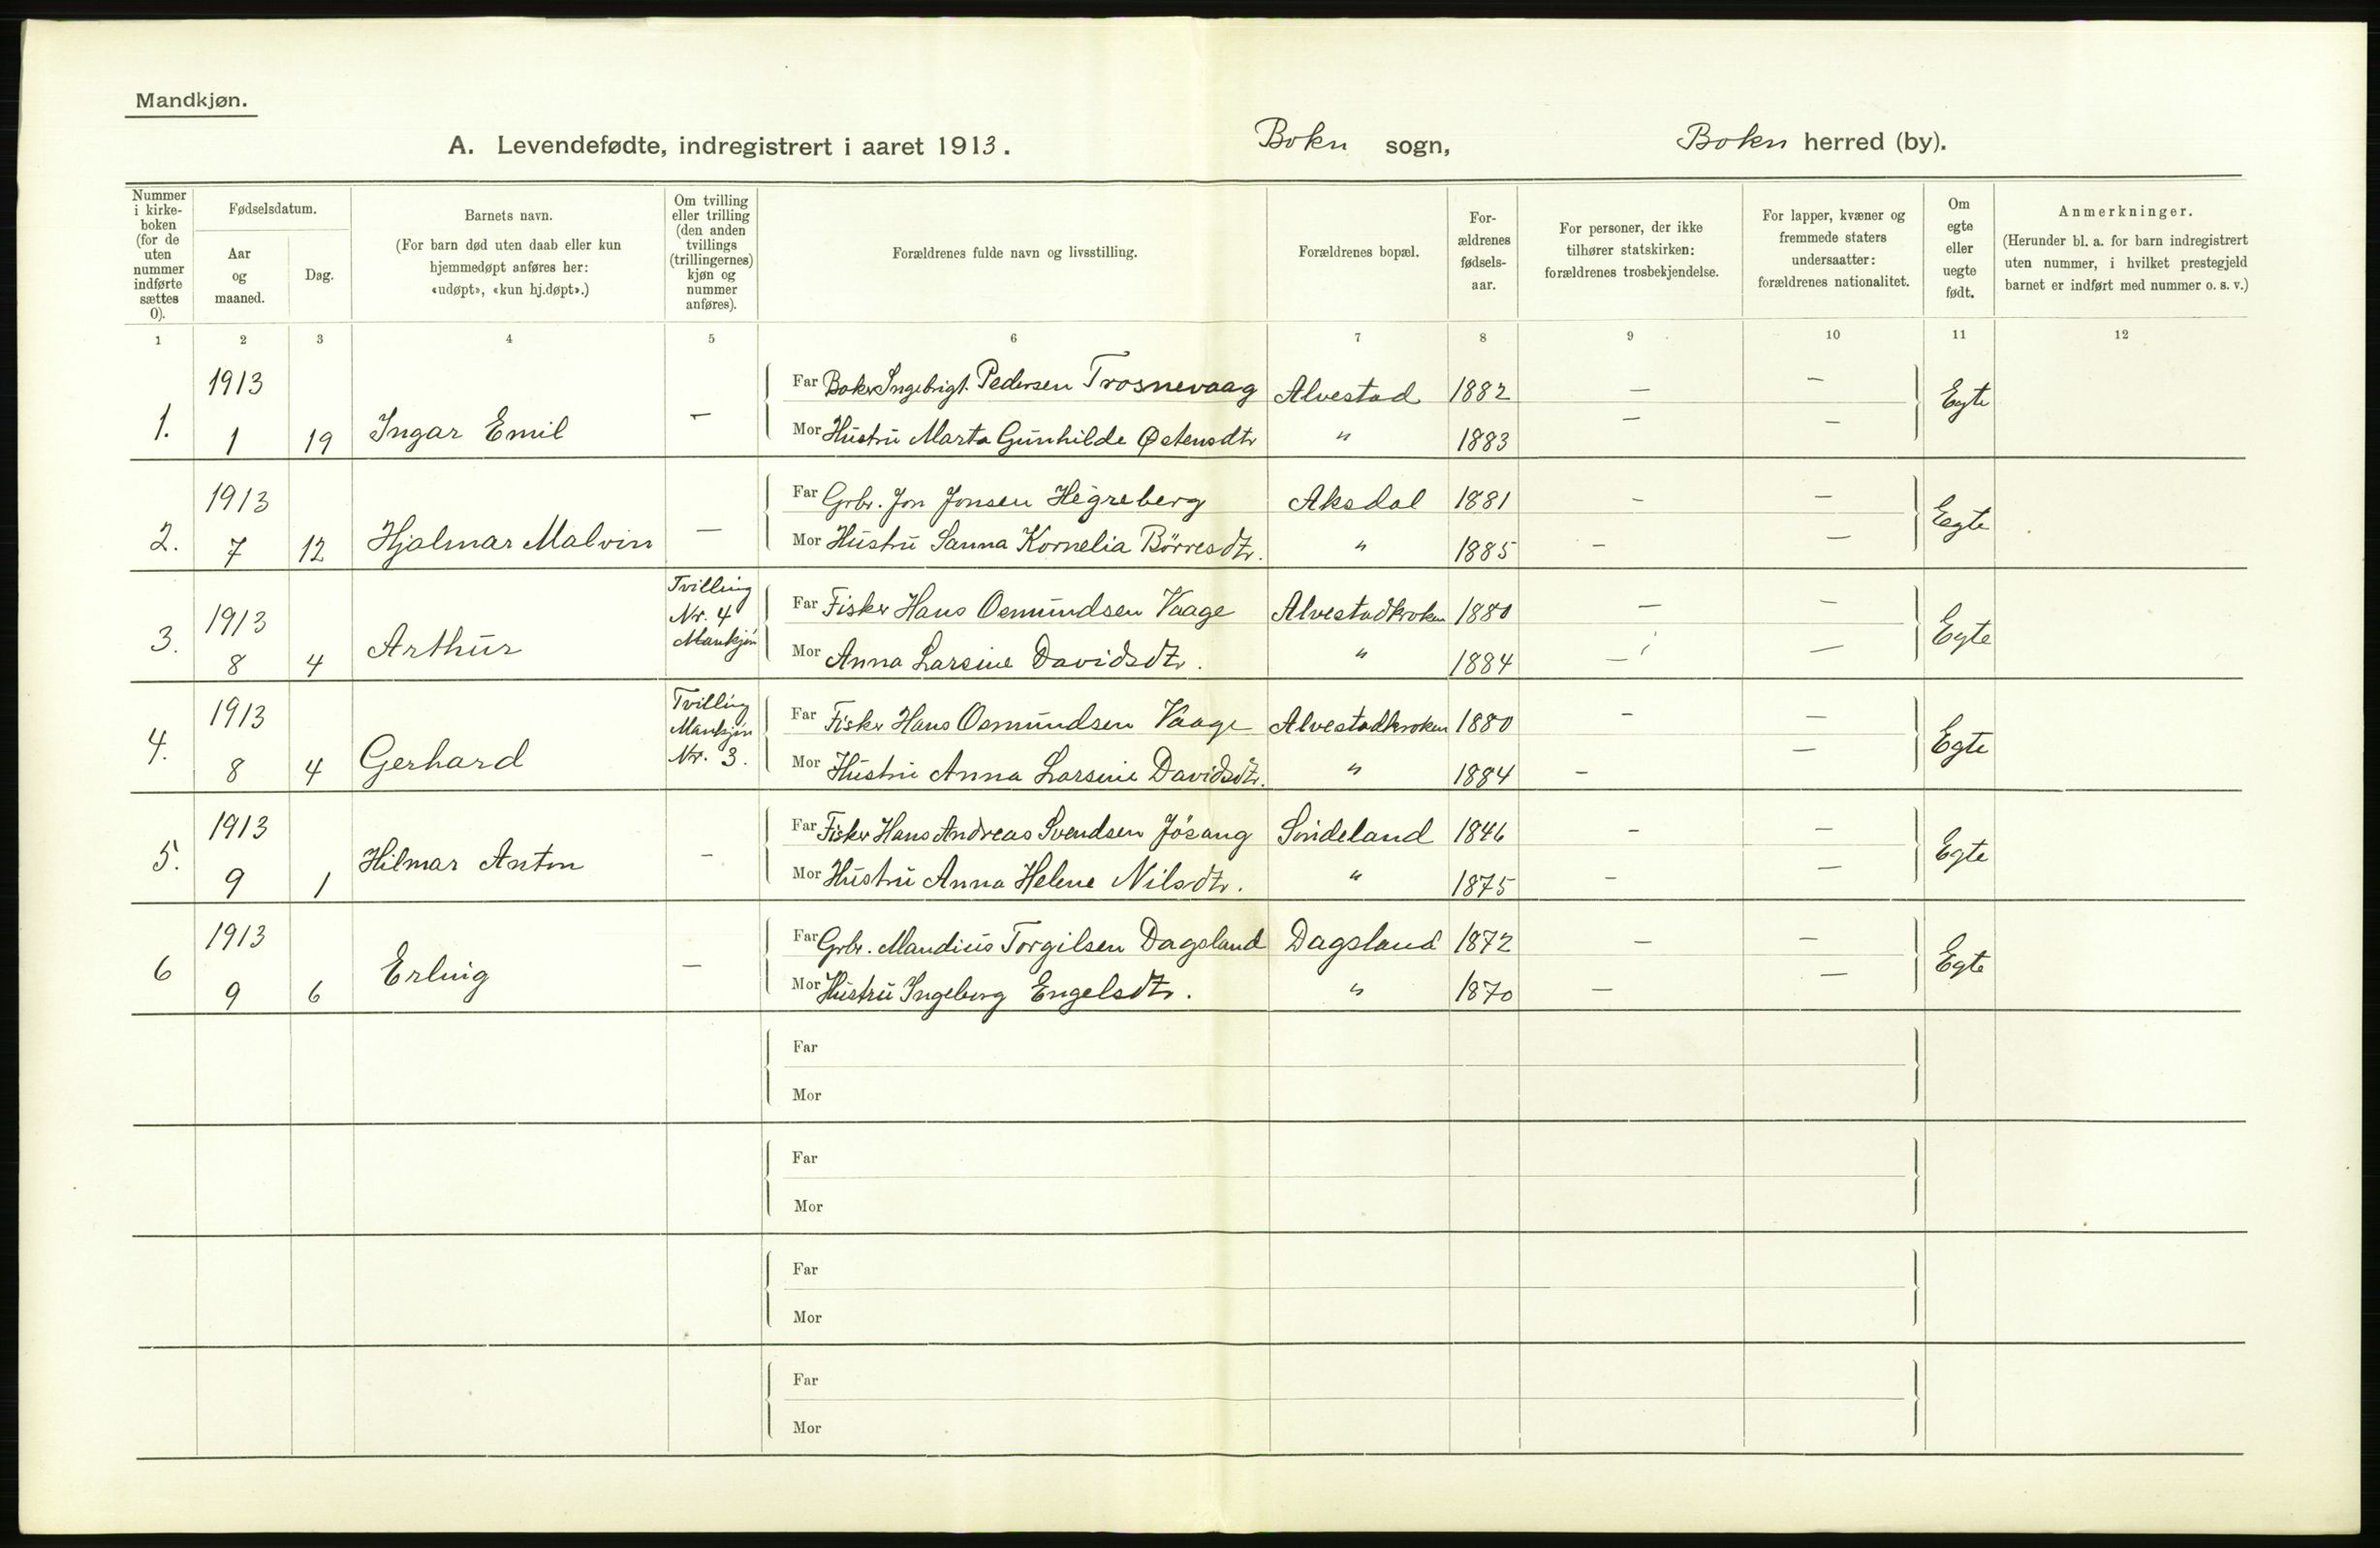 Mandkjøn.
A. Levendefødte, indregistrert i aaret 1913. Bokn sogn, Bokn herred (by).
Nummer i kirke-boken (for de uten nummer indførte sættes 0).
Fødselsdatum.
Aar og maaned.
Dag.
Barnets navn.
(For barn død uten daab eller kun hjemmedøpt anføres her: «udøpt», «kun hj.døpt».)
Om tvilling eller trilling (den anden tvillings (trillingernes) kjøn og nummer anføres).
Forældrenes fulde navn og livsstilling.
Forældrenes bopæl.
For-ældrenes fødsels-aar.
For personer, der ikke tilhører statskirken: forældrenes trosbekjendelse.
For lapper, kvæner og fremmede staters undersaatter: forældrenes nationalitet.
Om egte eller uegte født.
Anmerkninger.
(Herunder bl. a. for barn indregistrert uten nummer, i hvilket prestegjeld barnet er indført med nummer o. s. v.)
1 2 3 4 5 6 7 8 9 10 11 12
1913 Far Ingebrigt Pedersen Trosnevaag Alvestad 1882 — —
1. 1 19 Ingar Emil — Mor Hustru Marta Gunhilde Østensdtr " 1883 — — Egte
1913 Far Grbr. Jon Jonsen Hegreberg Aksdal 1881 — —
2. 7 12 Hjalmar Malvin — Mor Hustru Sanna Kornelia Børresdtr. " 1885 — — Egte
1913 Tvilling Nr. 4 Mankjøn Far Fisker Hans Osmundsen Vaage Alvestadkroken 1880 — —
3. 8 4 Arthur Mor Anna Larsine Davidsdtr. " 1884 — — Egte
1913 Tvilling Mankjøn Nr. 3. Far Fisker Hans Osmundsen Vaage Alvestadkroken 1880 — —
4. 8 4 Gerhard Mor Hustru Anna Larsine Davidsdtr. " 1884 — — Egte
1913 Far Fisker Hans Andreas Svendsen Jøsang Sündeland 1846 — —
5. 9 1 Hilmar Anton — Mor Hustru Anna Helene Nilsdtr. " 1875 — — Egte
1913 Far Grbr. Mandius Torgilsen Dagsland Dagsland 1872 — —
6 9 6 Erling — Mor Hustru Ingeborg Engelsdtr. " 1870 — — Egte
Far
Mor
Far
Mor
Far
Mor
Far
Mor